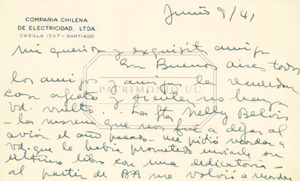 Junio 9/41
COMPAÑIA CHILENA
DE ELECTRICIDAD, LTDA
CASILLA 1557 - SANTIAGO
Mi querida y exquisita amiga
En Buenos Aires todos
los amigos y amigas la recuerdan
con afecto y sienten no haya
Vd. vuelto. La Srta Nelly
la morena que nos fue a dejar al
avión el año pasado me pidió recordar a
Vd. que le había prometido enviarle su
último libro con una dedicatoria
al partir de BA me volvió a recordar
PATRIMONIO UC